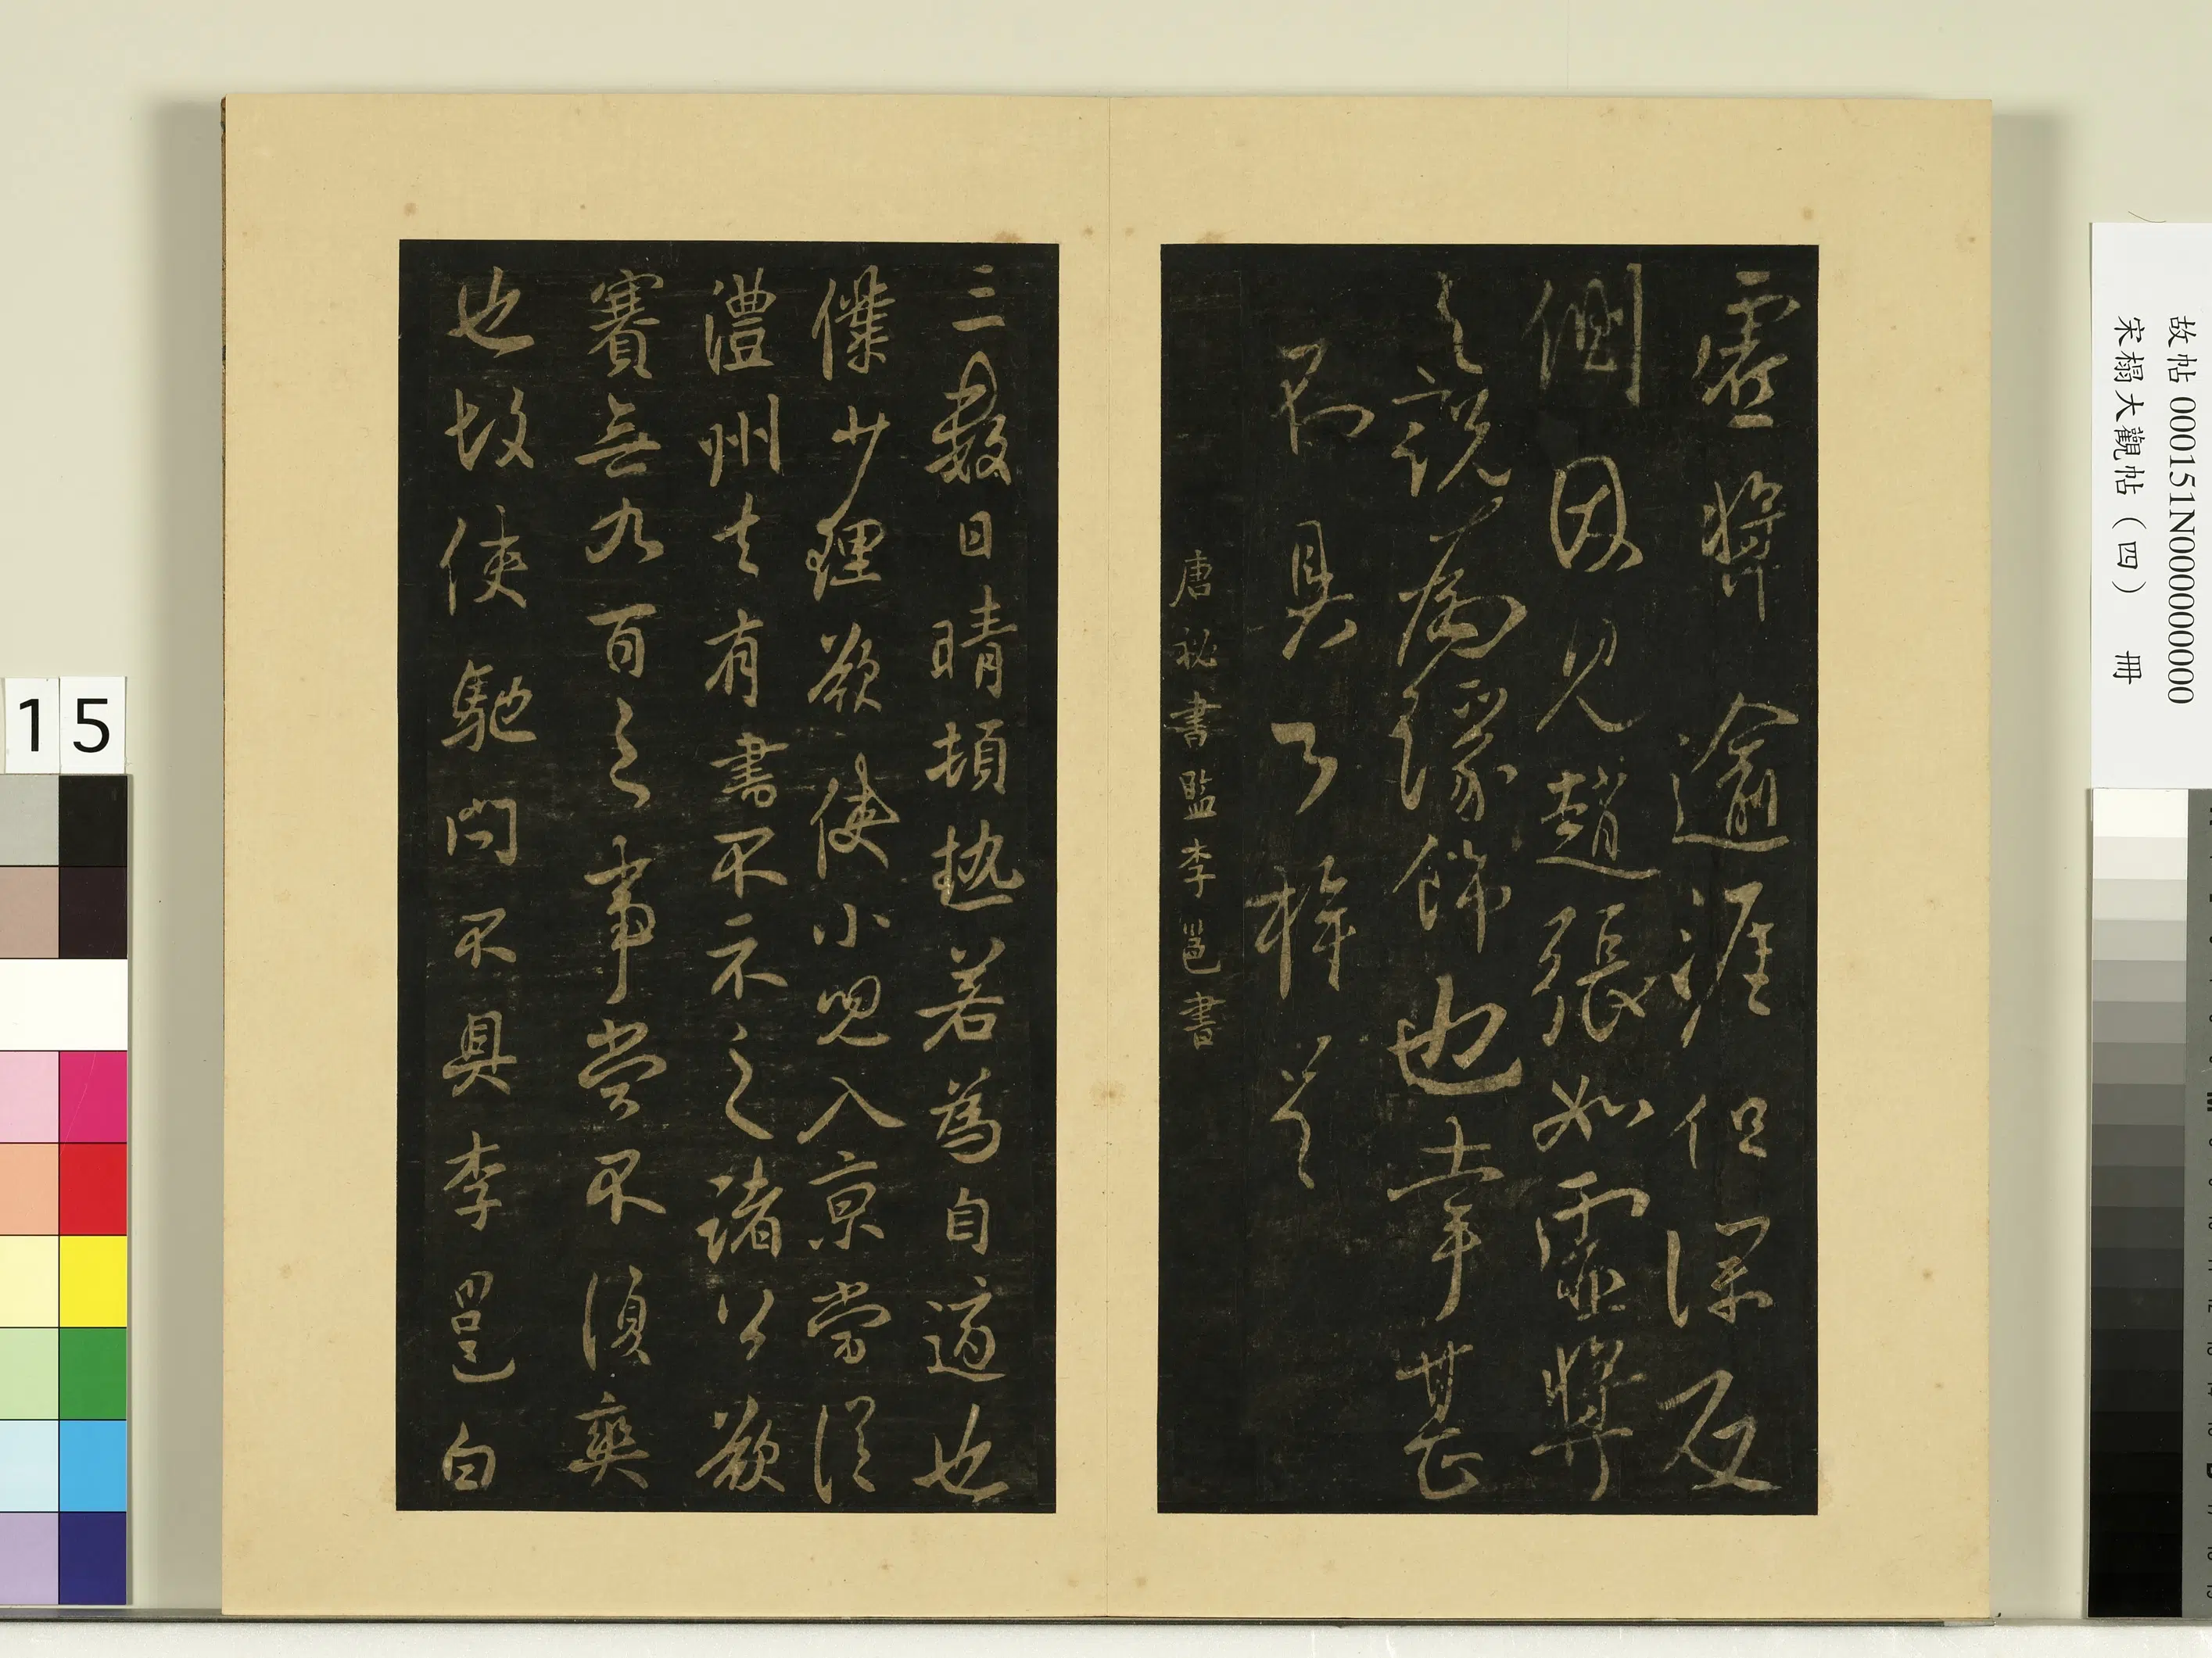 虛奬逾涯但深反
側因見趙張如虛奬
之說為緣飾也幸甚
不具了權呈
唐祕書監李邕書
三數日晴頓熱若為自適也
僕少理欲使小兒入京當從
澧州去有書不示之諸公欲
賽無九百之事當不須爽
也故使馳問不具李邕白
15
故帖 000151N000000000
宋榻大觀帖（四） 冊